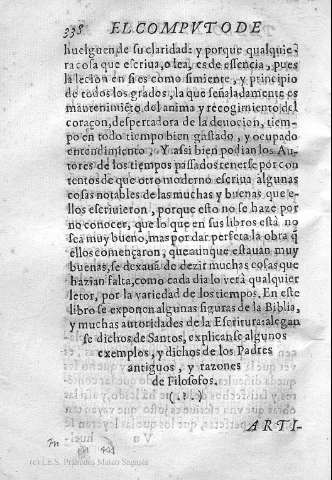 338 EL COMPVTO DE
huelguen de su claridad: y porque qualquie-
ra cosa que escriua, o lea, es de essencia, pues
la lecion en si es como simiente, y principio
de todos los grados, la que señaladamente es
mantenimiẽto del anima y recogimiento del
coraçon, despertadora de la deuocion, tiem-
po en todo tiempo bien gastado, y ocupado
entendimiento. Y assi bien podian los Au-
tores de los tiempos passados tenerse por con
tentos de que otro moderno escriua algunas
cosas notables de las muchas y buenas que e-
llos escriuieron, porque esto no se haze por
no conocer, que lo que en sus libros està no
sea muy bueno, mas por dar perfeta la obra q̃
ellos començaron, que aunque estauan muy
buenas, se dexauã de dezir muchas cosas que
hazian falta, como cada dia lo verà qualquier
letor, por la variedad de los tiempos. En este
libro se exponen algunas figuras de la Biblia,
y muchas autoridades de la Escritura: alegan
se dichos de Santos, explicanse algunos
exemplos, y dichos de los Padres
antiguos, y razones
de Filosofos.
(.?.)
ARTI-
(c) I.E.S. Práxedes Mateo Sagasta